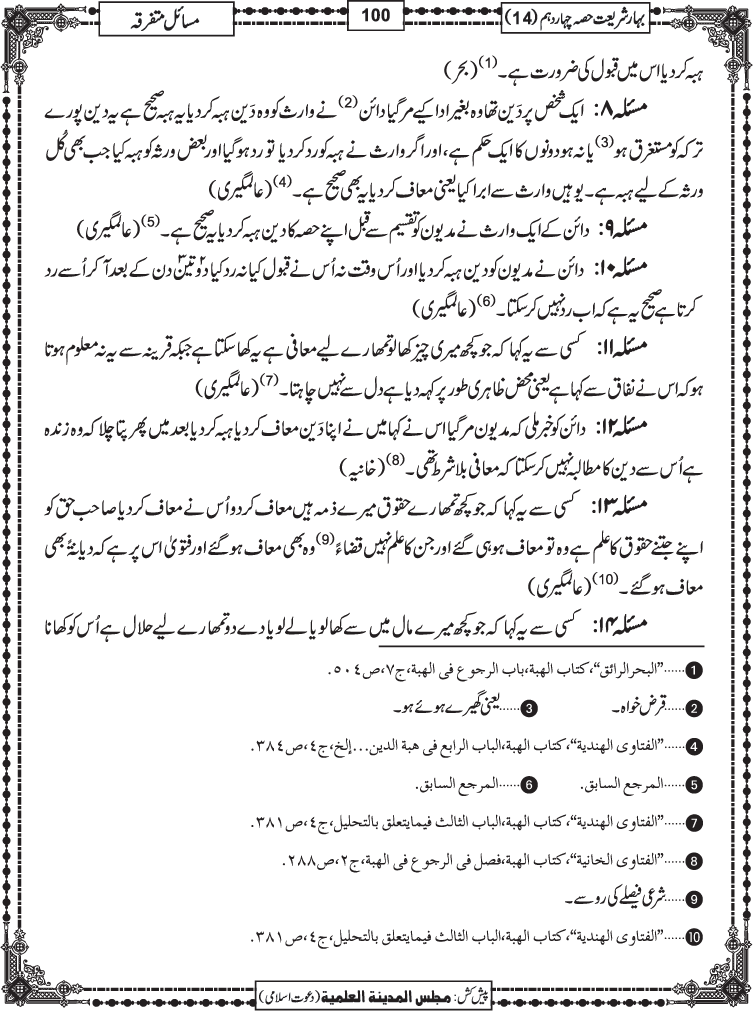 بہارِ شریعت حصہ چہاردہم (14)
100
مسائل متفرقہ
ہبہ کر دیا اس میں قبول کی ضرورت ہے۔(1) (بحر)
مسئلہ ۸: ایک شخص پر دَین تھا وہ بغیر ادا کیے مر گیا دائن (2) نے وارث کو وہ دَین ہبہ کر دیا یہ ہبہ صحیح ہے یہ دین پورے
ترکہ کو مستغرق ہو (3) یا نہ ہو دونوں کا ایک حکم ہے، اور اگر وارث نے ہبہ کو رد کر دیا تو رد ہو گیا اور بعض ورثہ کو ہبہ کیا جب بھی کُل
ورثہ کے لیے ہبہ ہے۔ یوہیں وارث سے ابرا کیا یعنی معاف کر دیا یہ بھی صحیح ہے۔(4) (عالمگیری)
مسئلہ ۹: دائن کے ایک وارث نے مدیون کو تقسیم سے قبل اپنے حصہ کا دین ہبہ کر دیا یہ صحیح ہے۔(5) (عالمگیری)
مسئلہ ۱۰: دائن نے مدیون کو دین ہبہ کر دیا اور اُس وقت نہ اُس نے قبول کیا نہ رد کیا دو تین دن کے بعد آ کر اُسے رد
کرتا ہے صحیح یہ ہے کہ اب رد نہیں کر سکتا۔(6) (عالمگیری)
مسئلہ ۱۱: کسی سے یہ کہا کہ جو کچھ میری چیز کھا لو تمھارے لیے معافی ہے یہ کھا سکتا ہے جبکہ قرینہ سے یہ نہ معلوم ہوتا
ہو کہ اس نے نفاق سے کہا ہے یعنی محض ظاہری طور پر کہہ دیا ہے دل سے نہیں چاہتا۔(7) (عالمگیری)
مسئلہ ۱۲: دائن کو خبر ملی کہ مدیون مر گیا اس نے کہا میں نے اپنا دَین معاف کر دیا ہبہ کر دیا بعد میں پھر پتا چلا کہ وہ زندہ
ہے اُس سے دین کا مطالبہ نہیں کر سکتا کہ معافی بلا شرط تھی۔(8) (خانیہ)
مسئلہ ۱۳: کسی سے یہ کہا کہ جو کچھ تمھارے حقوق میرے ذمہ ہیں معاف کر دو اُس نے معاف کر دیا صاحب حق کو
اپنے جتنے حقوق کا علم ہے وہ تو معاف ہو ہی گئے اور جن کا علم نہیں قضاءً (9) وہ بھی معاف ہو گئے اور فتویٰ اس پر ہے کہ دیانۃً بھی
معاف ہو گئے۔(10) (عالمگیری)
مسئلہ ۱۴: کسی سے یہ کہا کہ جو کچھ میرے مال میں سے کھا لو یا لے لو یا دے دو تمھارے لیے حلال ہے اُس کو کھانا
1 ......"البحرالرائق"، کتاب الھبۃ، باب الرجوع فی الھبۃ، ج۷، ص۵۰۴.
2 ......قرض خواہ۔ 3 ......یعنی گھیرے ہوئے ہو۔
4 ......"الفتاوی الھندیۃ"، کتاب الھبۃ، الباب الرابع فی ھبۃ الدین...إلخ، ج۴، ص۳۸۴.
5 ......المرجع السابق. 6 ......المرجع السابق.
7 ......"الفتاوی الھندیۃ"، کتاب الھبۃ، الباب الثالث فیما یتعلق بالتحلیل، ج۴، ص۳۸۱.
8 ......"الفتاوی الخانیۃ"، کتاب الھبۃ، فصل فی الرجوع فی الھبۃ، ج۲، ص۲۸۸.
9 ......شرعی فیصلے کی رو سے۔
10 ......"الفتاوی الھندیۃ"، کتاب الھبۃ، الباب الثالث فیما یتعلق بالتحلیل، ج۴، ص۳۸۱.
پیش کش: مجلس المدینۃ العلمیۃ (دعوت اسلامی)